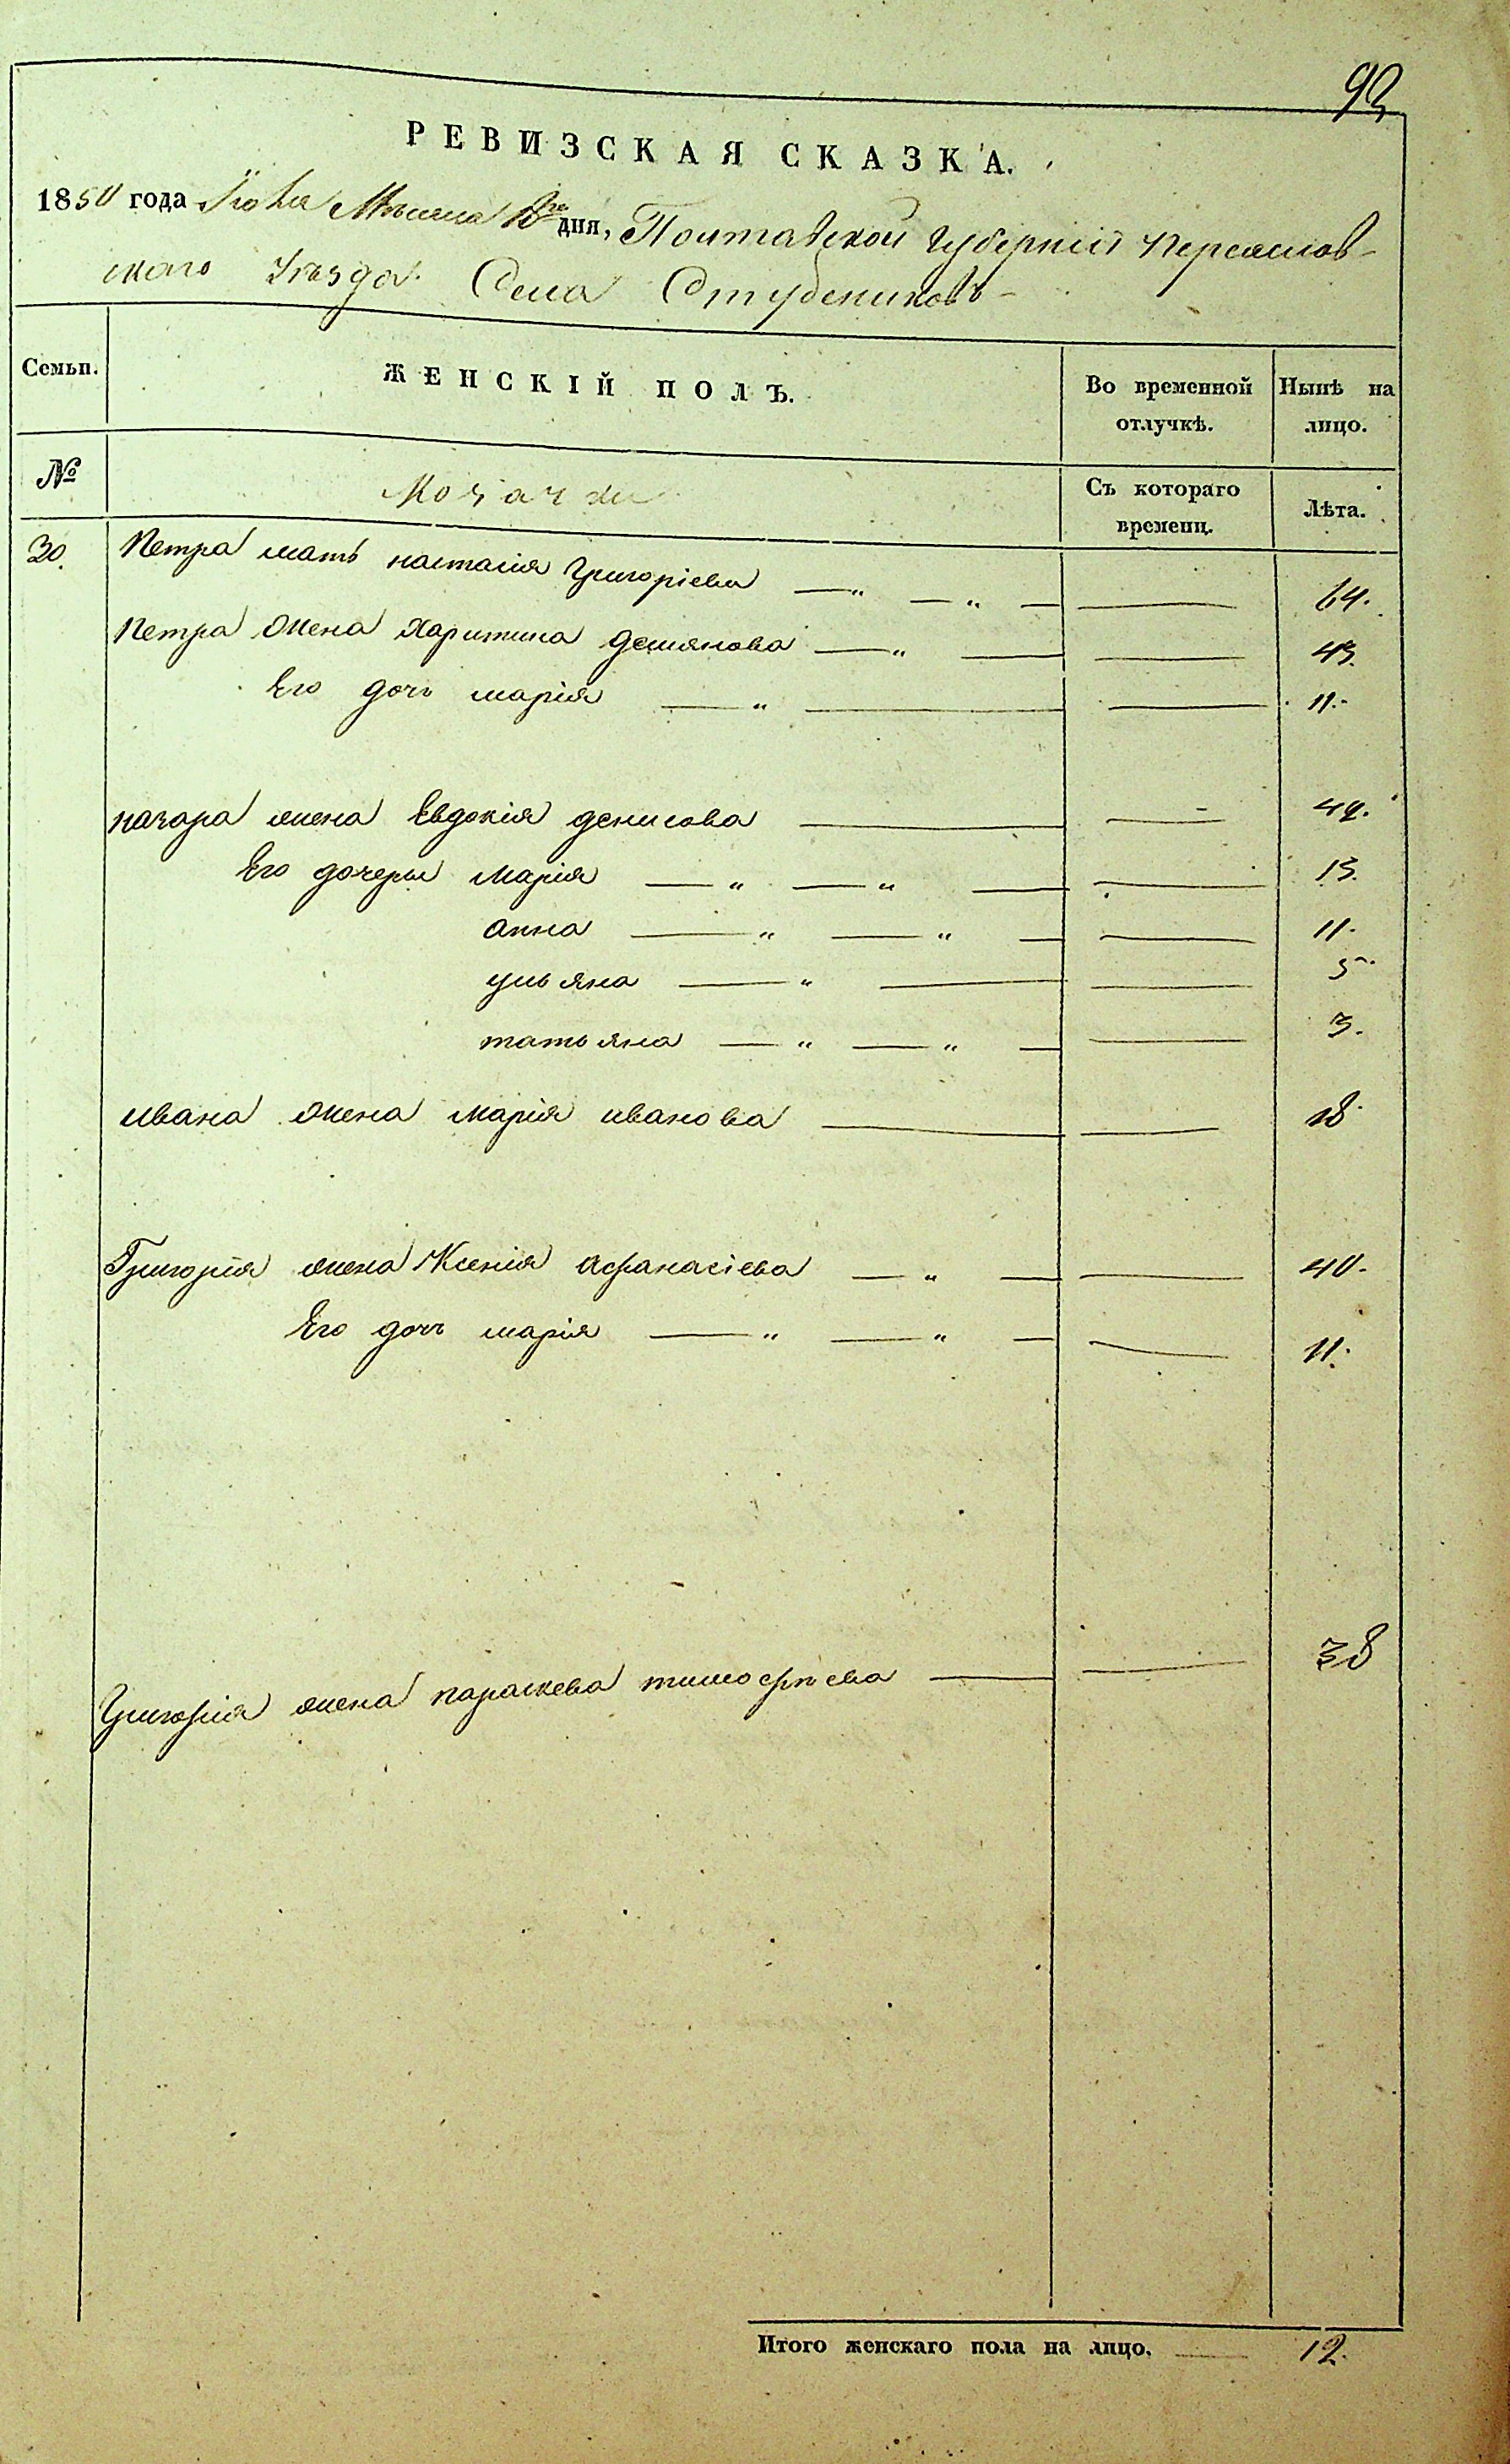 92
РЕВИЗСКАЯ СКАЗКА.
1850 года Іюня Мѣсяца дня, Полтавской губерніи Переяслов-
скаго Уѣзда Села Студениковъ -
Семьи. ЖЕНСКІЙ ПОЛЪ. Во временной отлучкѣ. Нынѣ на лицо.
№ Козачки Съ котораго времени. Лѣта.
30. Петра мать настасія Григоріева — „ — „ — — 64.
Петра жена Харитина демянова — „ — — 43.
Его дочь марія — „ — — 11.
назара жена Евдокія денисова — — 42.
Его дочеры Марія — „ — „ — — 13.
анна — „ — „ — — 11.
ульяна — „ — — 5.
татьяна — „ — „ — — 3.
ивана жена марія иванова — — 18.
Григорія жена Ксенія афанасіева — „ — — 40.
Его дочь марія — „ — „ — — 11.
Григорія жена параскева тимофѣева — — 38
Итого женскаго пола на лицо. — 12.